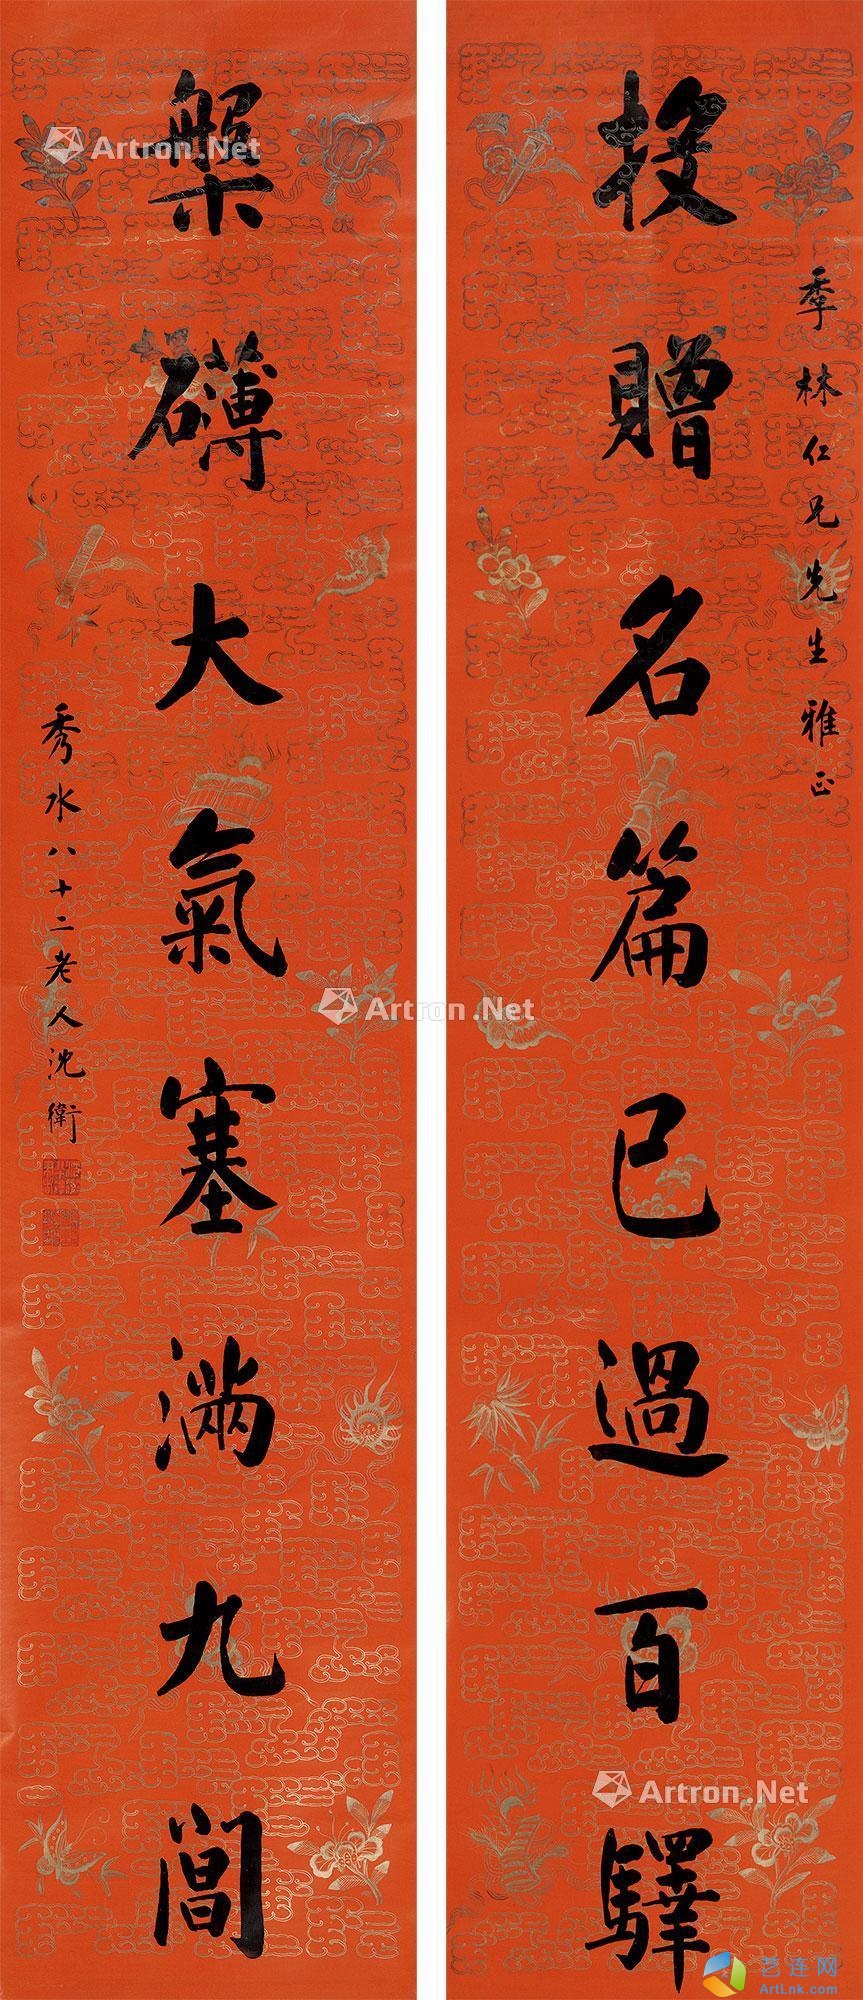 投贈名篇已過百驛
季林仁兄先生雅正
槃礴大氣塞滿九閶
秀水八十二老人沈衛
Artron.Net
Artron.Net
Artron.Net
艺连网
ArtLnk.com